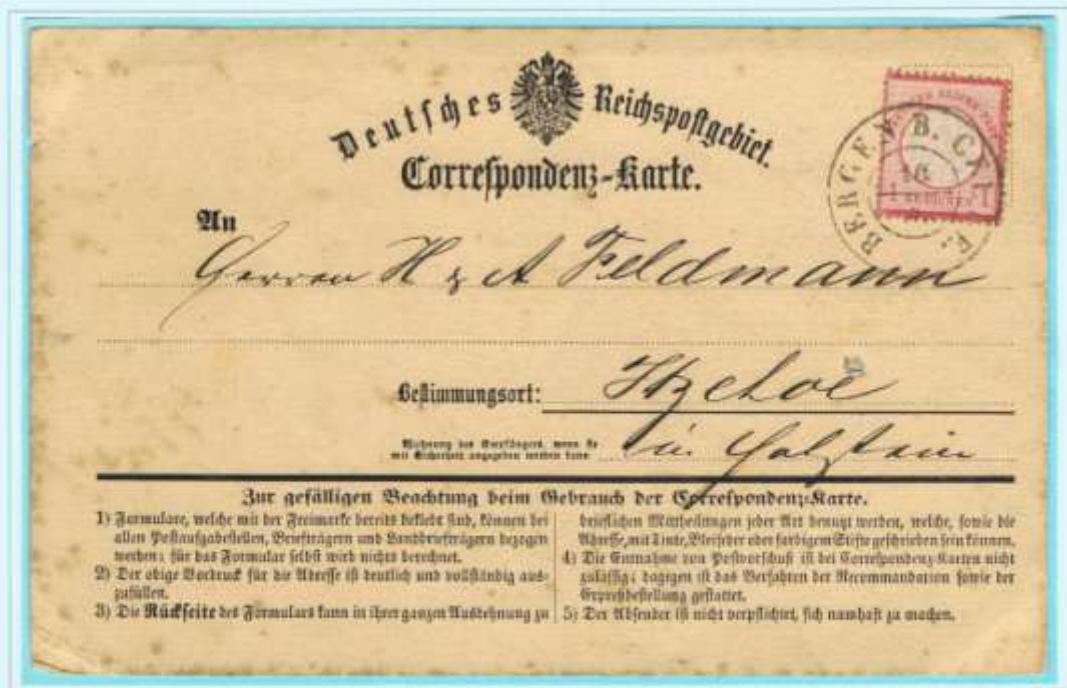 Deutsches Reichspostgebiet.
Correspondenz-Karte.
BERGEN B. CELLE.
1 1
An
Herren H & A Feldmann
Bestimmungsort: Itzehoe
Wohnung des Empfängers, wenn sie
mit Sicherheit angegeben werden kann
in Holstein
Zur gefälligen Beachtung beim Gebrauch der Correspondenz-Karte.
1) Formulare, welche mit der Freimarke bereits beklebt sind, können bei
allen Postaufgabestellen, Briefträgern und Landbriefträgern bezogen
werden; für das Formular selbst wird nichts berechnet.
2) Der obige Vordruck für die Adresse ist deutlich und vollständig aus-
zufüllen.
3) Die Rückseite des Formulars kann in ihrer ganzen Ausdehnung zu
brieflichen Mittheilungen jeder Art benutzt werden, welche, sowie die
Adresse, mit Tinte, Bleifeder oder farbigem Stifte geschrieben sein können.
4) Die Entnahme von Postvorschuß ist bei Correspondenz-Karten nicht
zulässig; dagegen ist das Verfahren der Recommandation sowie der
Expreßbestellung gestattet.
5) Der Absender ist nicht verpflichtet, sich namhaft zu machen.